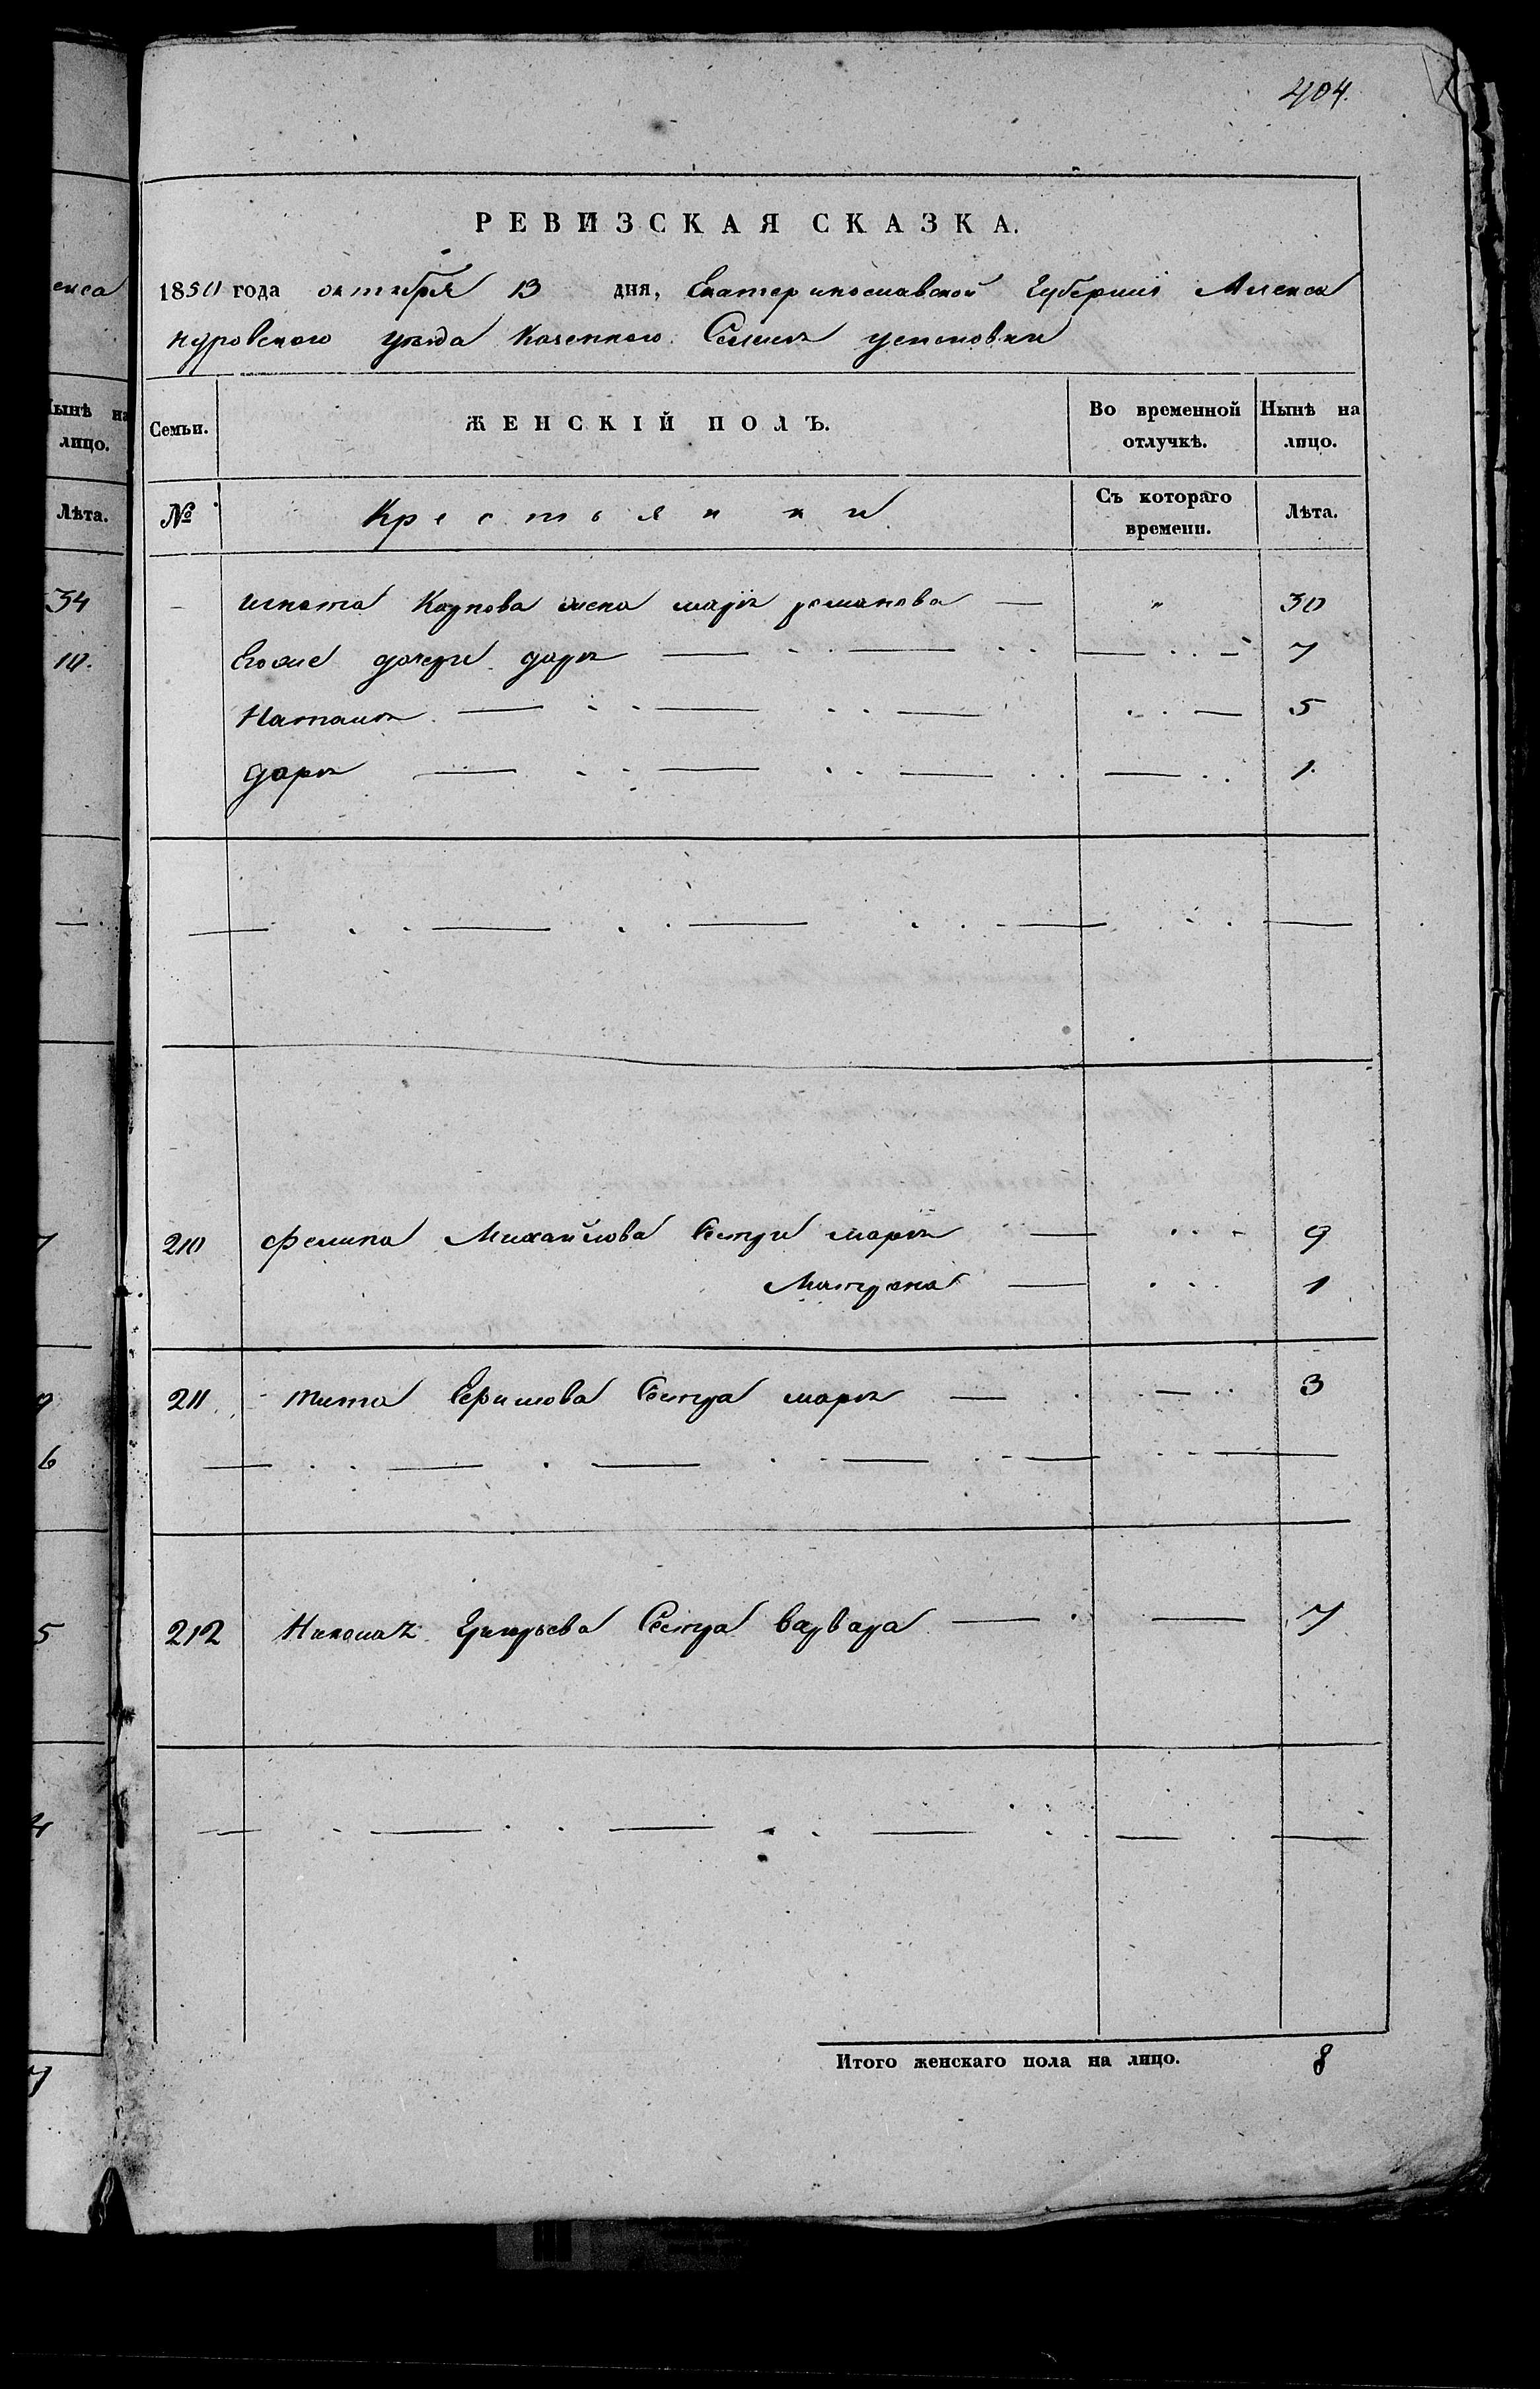 404.
РЕВИЗСКАЯ СКАЗКА.
1850 года октября 13 дня, Екатеринославской Губерніи Алекса
ндровского уезда Казенного Селения
Семьи. ЖЕНСКІЙ ПОЛЪ. Во временной отлучкѣ. Нынѣ на лицо.
№ Крестьянки Съ котораго времени. Лѣта.
Игната Карпова жена марія романова — " 30
Егоже дочери дарія 7
Наталия 5
Дария 1.
210 Филипа Михайлова Сестри мария 9
Матрона 1
211 тита Ефимова Сестра мария 3
212 Николая Григорьева Сестра варвара 7
Итого женскаго пола на лицо. 8
енса
Нынѣ на
лицо.
Лѣта.
34
10.
7
6
5
4
7